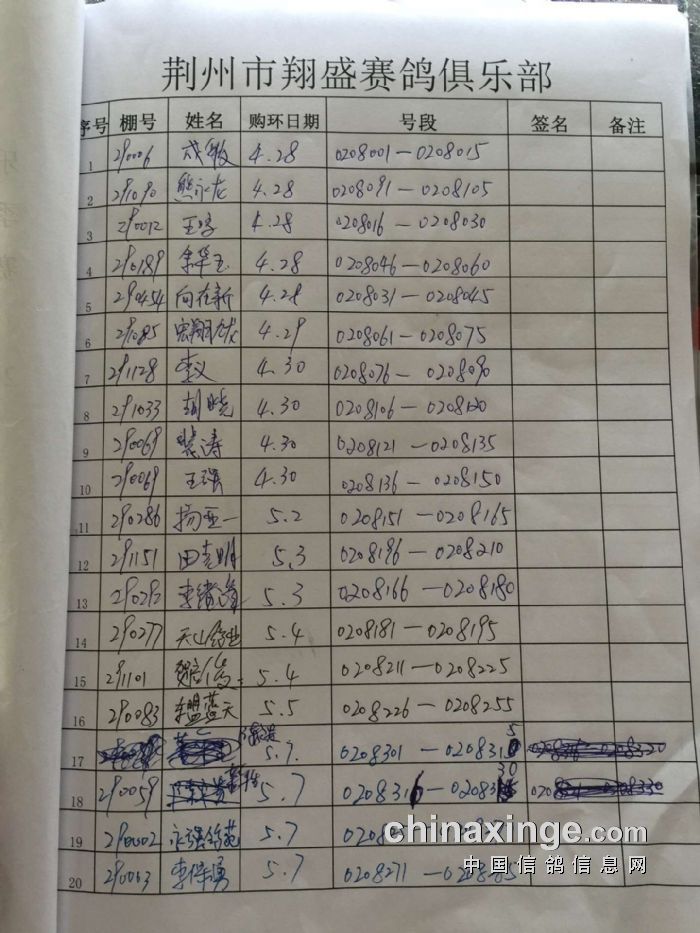 荆州市翔盛赛鸽俱乐部
序号 棚号 姓名 购环日期 号段 签名 备注
1 290006 成敏 4.28 0208001—0208015
2 291090 熊永龙 4.28 0208091—0208105
3 290012 王 4.28 0208016—0208030
4 290189 余华玉 4.28 0208046—0208060
5 290454 向在新 4.28 0208031—0208045
6 291085 4.29 0208061—0208075
7 291128 李义 4.30 0208076—0208090
8 291033 胡晓 4.30 0208106—0208120
9 290069 龚涛 4.30 0208121—0208135
10 290069 王强 4.30 0208136—0208150
11 290286 杨亚一 5.2 0208151—0208165
12 291151 田克明 5.3 0208196—0208210
13 李绪 5.3 0208166—0208180
14 290277 天山鸽业 5.4 0208181—0208195
15 291101 5.4 0208211—0208225
16 290083 东盟蓝天 5.5 0208226—0208255
17 5.7. 0208301—0208315
18 290059 5.7 0208316—0208330
19 290002 永强鸽苑 5.7
20 290063 李 5.7 0208271—0208285
chinaxinge.com
中国信鸽信息网